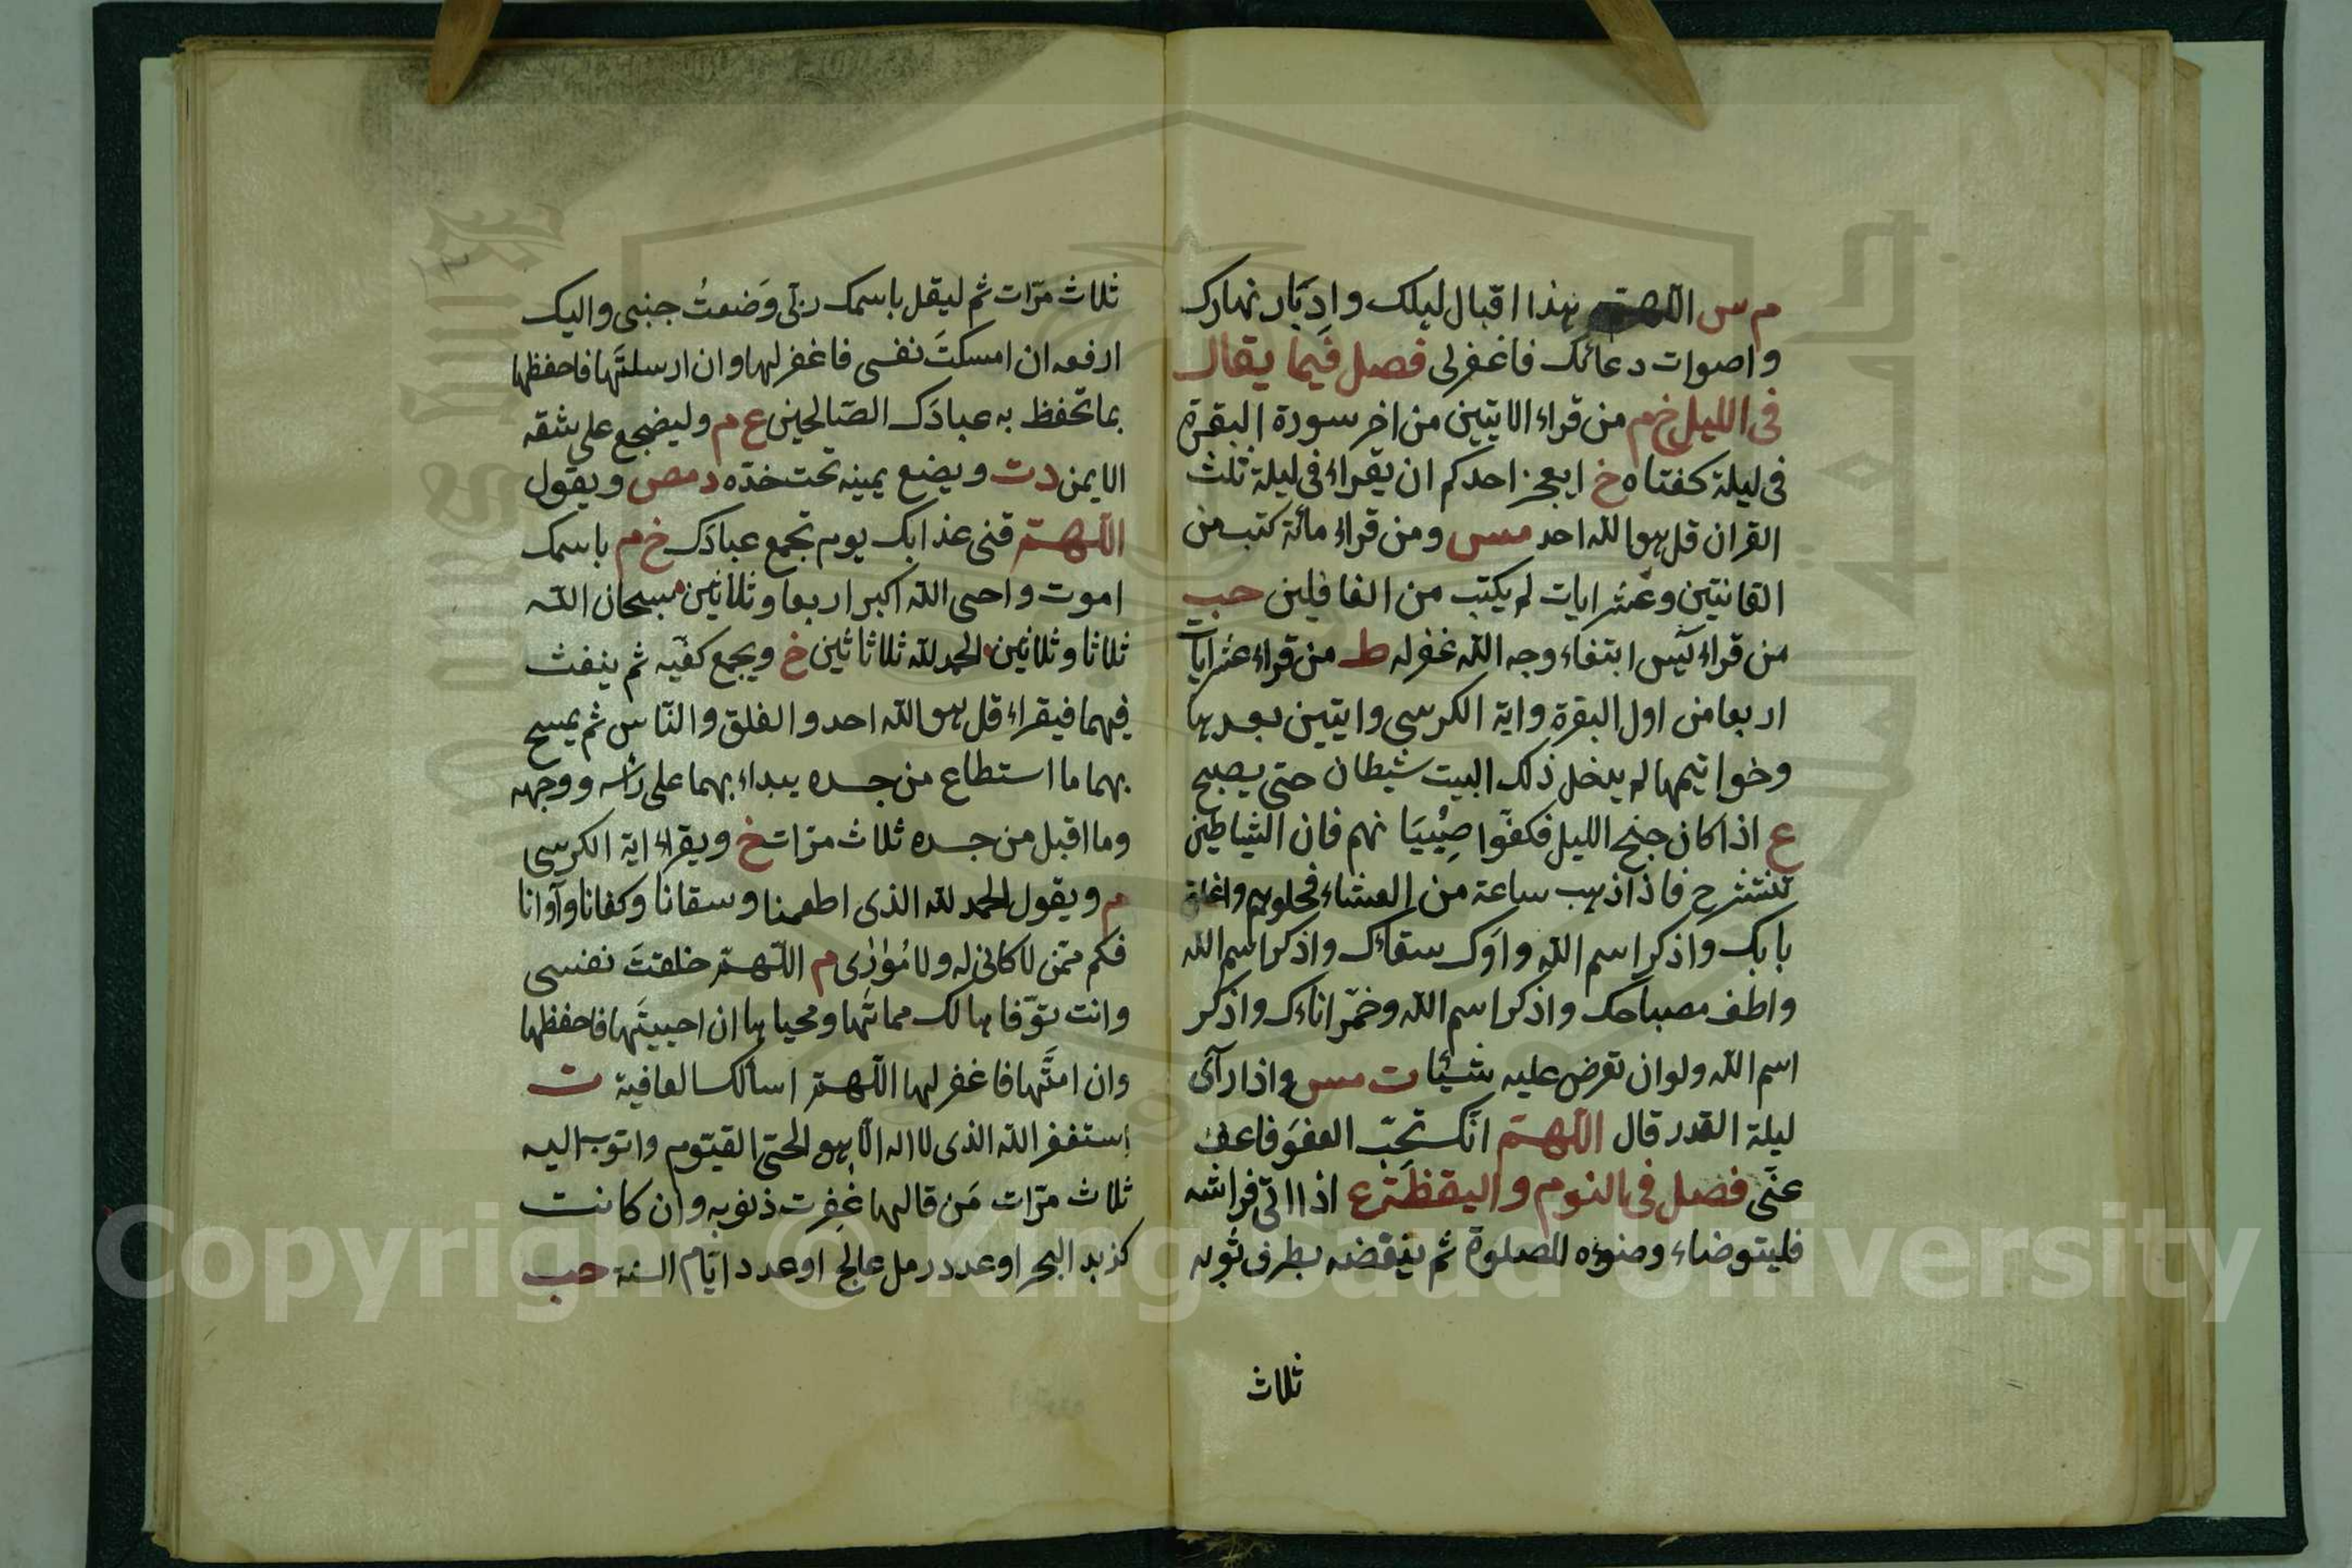 م س اللهم هذا اقبال ليلك وادبار نهارك
واصوات دعائك فاغفرلى فصل فيما يقال
فى الليل خ م من قراء الايتين من اخر سورة البقرة
فى ليلة كفتاه خ ايعجز احدكم ان يقراء فى ليلة ثلث
القران قل هو الله احد مس ومن قراء مائة كتب من
القانتين وعشر ايات لم يكتب من الغافلين حب
من قراء يس ابتغاء وجه الله غفرله ط من قراء عشر ايات
اربعا من اول البقرة واية الكرسى وايتين بعدها
وخواتيمها لم يدخل ذلك البيت شيطان حتى يصبح
ع اذا كان جنح الليل فكفوا صبيانهم فان الشياطين
تنتشر ح فاذا ذهب ساعة من العشاء فخلوهم واغلق
بابك واذكر اسم الله واوك سقاءك واذكر اسم الله
واطف مصباحك واذكر اسم الله وخمر اناءك واذكر
اسم الله ولو ان تعرض عليه شيئا ت مس واذا رآى
ليلة القدر قال اللهم انك تحب العفو فاعف
عنى فصل فى النوم واليقظة ع اذا اتى فراشه
فليتوضاء وضوءه للصلوة ثم ينفضه بطرف ثوبه
ثلاث
ثلاث مرّات ثم ليقل باسمك ربّى وَضعتُ جنبى واليك
ارفعه ان امسكتَ نفسى فاغفرلها وان ارسلتَها فاحفظها
بما تحفظ به عبادَك الصّالحين ع م وليضجع على شقه
الايمن د ت ويضع يمينه تحت خدّه د مص ويقول
اللهم قنى عذابك يوم تجمع عبادَك خ م باسمك
اموت واحى الله اكبر اربعا وثلاثين سبحان الله
ثلاثا وثلاثين الحمد لله ثلاثا ثين خ ويجمع كفّيه ثم ينفث
فيهما فيقراء قل هو الله احد والفلق والنّاس ثم يمسح
بهما ما استطاع من جسده يبداء بهما على رأسه ووجهه
وما اقبل من جسده ثلاث مرّات خ ويقراء اية الكرسى
م ويقول الحمد لله الذى اطعمنا وسقانا وكفانا وآوانا
فكم ممّن لا كافى له ولا مُؤوٰى م اللهم خلقتَ نفسى
وانت توّفاها لك مماتُها ومحياها ان احييتَها فاحفظها
وان امتَّها فاغفر لها اللهم اسألك العافية ت
استغفر الله الذى لا اله الّا هو الحىّ القيّوم واتوب اليه
ثلاث مرّات مَن قالها غُفِرت ذنوبه وان كانت
كزبد البحر او عدد رمل عالِج او عدد ايّام السنة حب
Copyright © King Saud University